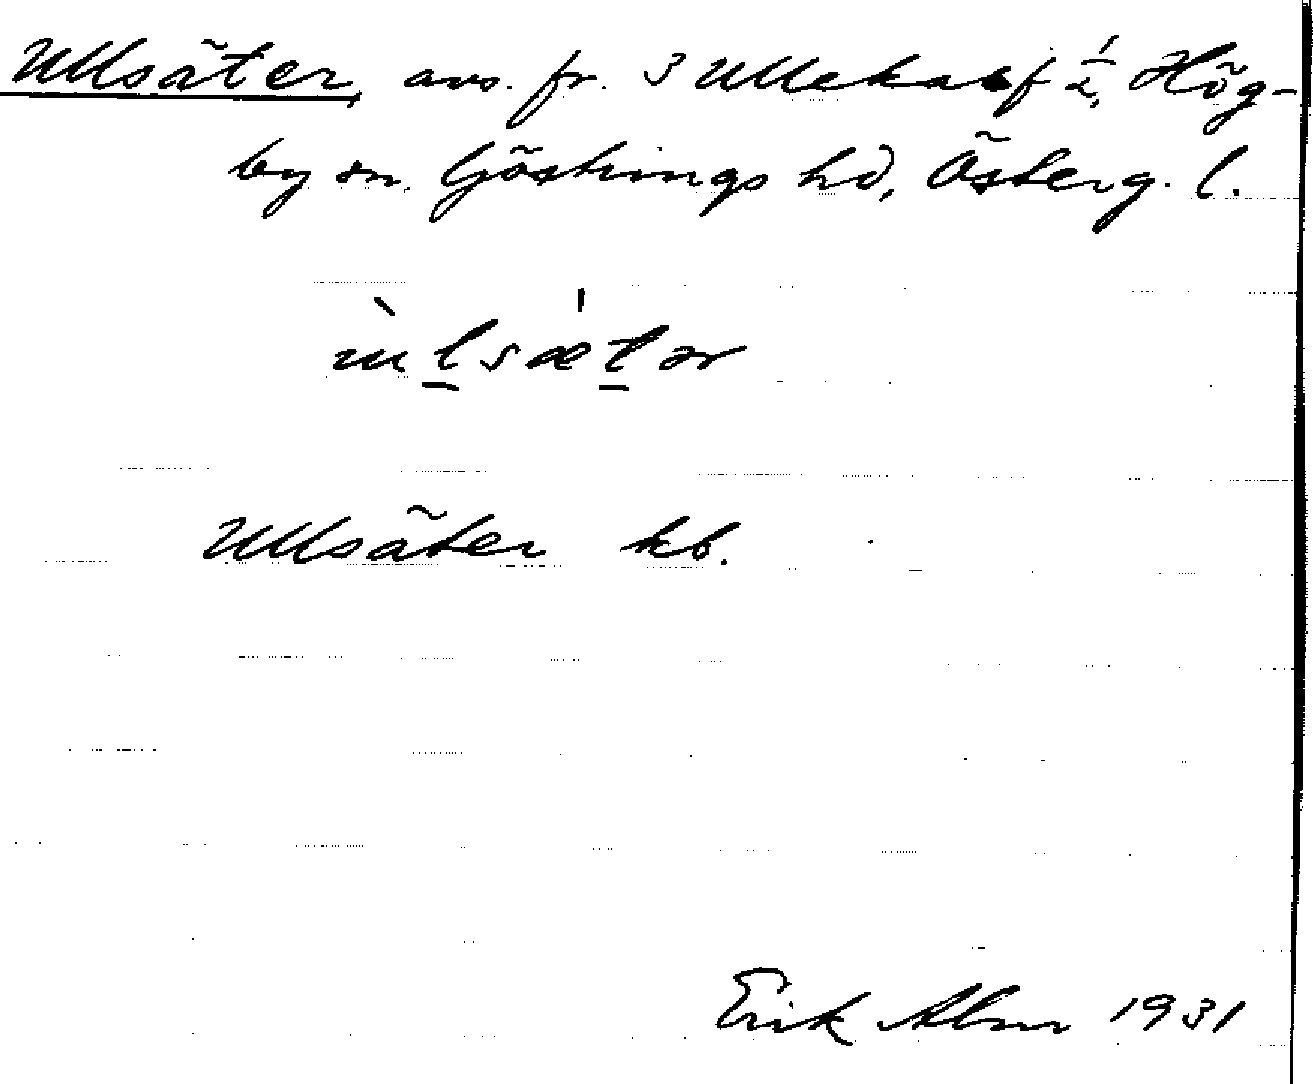 Ullsäter, avs. fr. 3 Ullekalf 1/2, Hög-
by sn. Göstrings hd, Österg. l.
ùlsæ̍tər
Ullsäter kb.
Erik Alm 1931